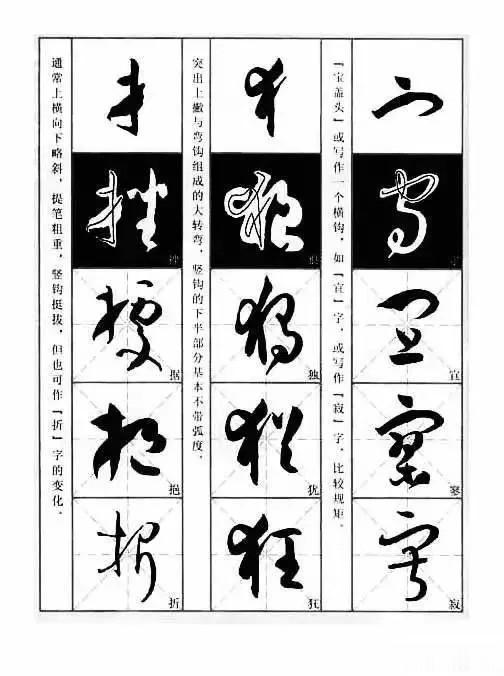 宣
寥
寂
「宝盖头」或写作一个横钩，如「宣」字，或写作「寂」字，比较规矩。
独
犹
狂
突出上撇与弯钩组成的大转弯，竖钩的下半部分基本不带弧度。
据
挹
折
通常上横向下略斜，提笔粗重，竖钩挺拔，但也可作「折」字的变化。